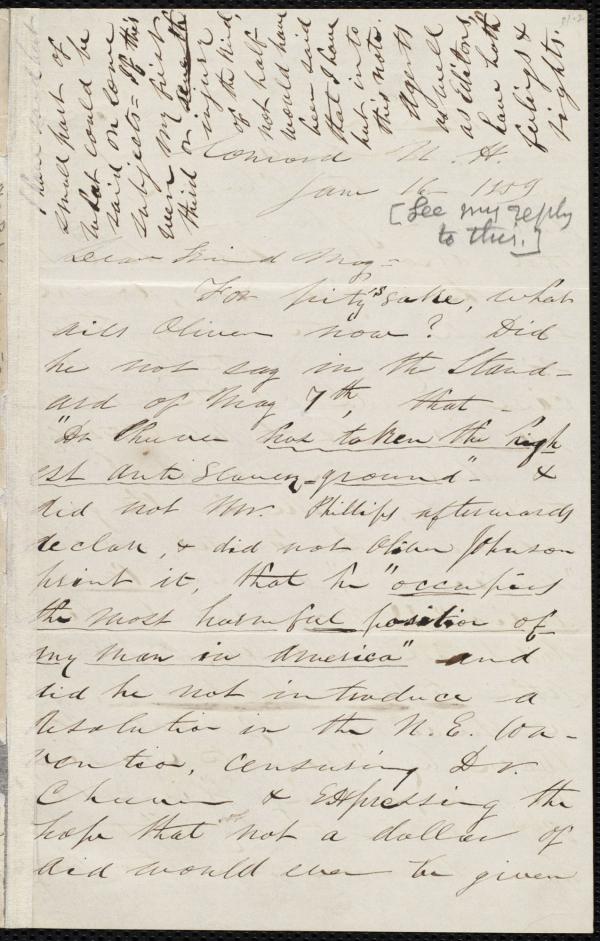 I have
small part of
what could be
said on some
subjects = If this
were my first
third or seventh
injury
of the kind,
not half
would have
been said
that I have
put into
this note.
Agents
as well
as Editors,
have both
feelings &
rights.
Concord N. H.
Jan 16 1859
[See my reply
to this.]
Dear Friend May =
For pity's sake, what
ails Oliver now? Did
he not say in the Stand-
ard of May 7th, that -
"Dr Cheever has taken the high
est anti slavery ground" - &
did not Mr. Phillips afterwards
declare, & did not Oliver Johnson
print it, that he "occupies
the most harmful position of
any man in America" and
did he not introduce a
Resolution in the N. E. Con-
vention, censuring Dr.
Cheever & Expressing the
hope that not a dollar of
aid would ever be given